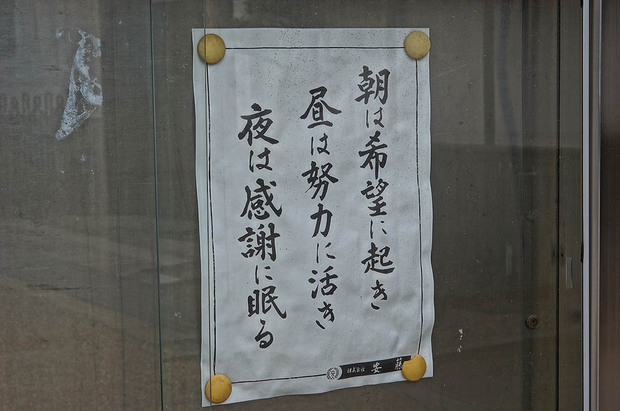 朝は希望に起き
昼は努力に活き
夜は感謝に眠る
株式会社 安藤